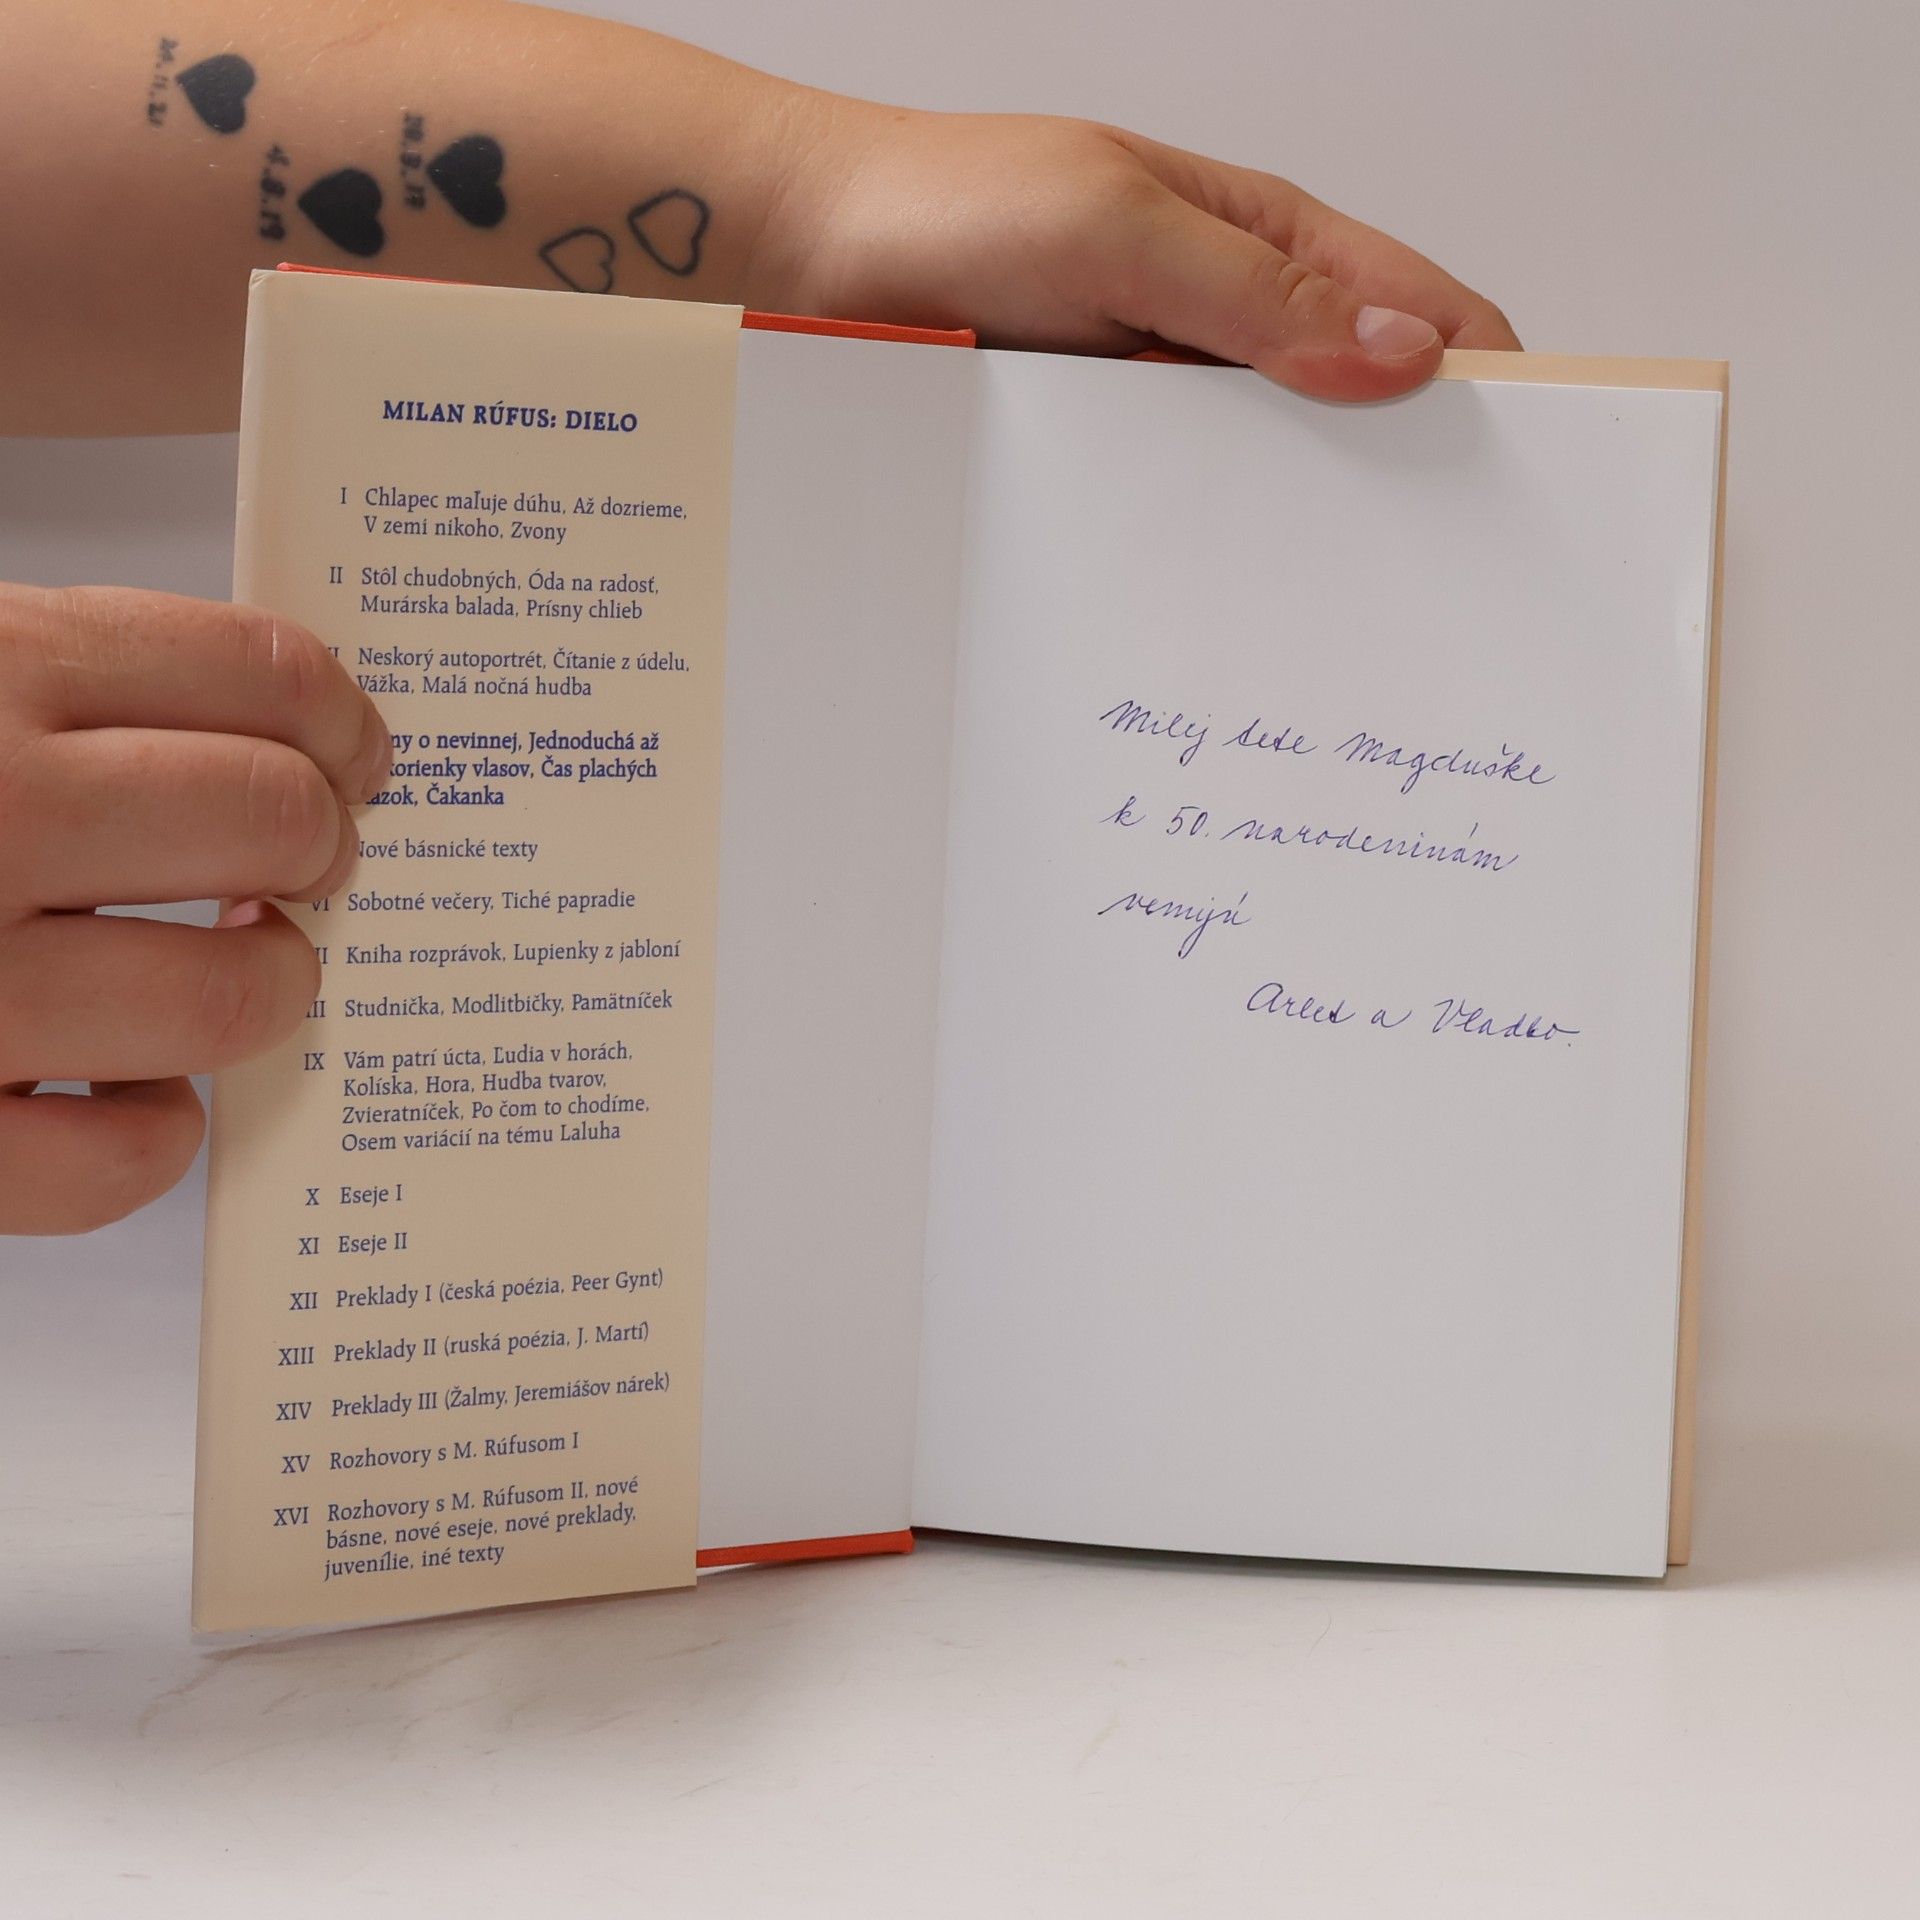 MILAN RÚFUS: DIELO
I Chlapec maľuje dúhu, Až dozrieme,
V zemi nikoho, Zvony
II Stôl chudobných, Óda na radosť,
Murárska balada, Prísny chlieb
Neskorý autoportrét, Čítanie z údelu,
Vážka, Malá nočná hudba
ny o nevinnej, Jednoduchá až
korienky vlasov, Čas plachých
ázok, Čakanka
Nové básnické texty
VI Sobotné večery, Tiché papradie
II Kniha rozprávok, Lupienky z jabloní
III Studnička, Modlitbičky, Pamätníček
IX Vám patrí úcta, Ľudia v horách,
Kolíska, Hora, Hudba tvarov,
Zvieratníček, Po čom to chodíme,
Osem variácií na tému Laluha
X Eseje I
XI Eseje II
XII Preklady I (česká poézia, Peer Gynt)
XIII Preklady II (ruská poézia, J. Martí)
XIV Preklady III (Žalmy, Jeremiášov nárek)
XV Rozhovory s M. Rúfusom I
XVI Rozhovory s M. Rúfusom II, nové
básne, nové eseje, nové preklady,
juvenílie, iné texty
Milej tete Magduške
k 50. narodeninám
venujú
Arlet a Vladko.